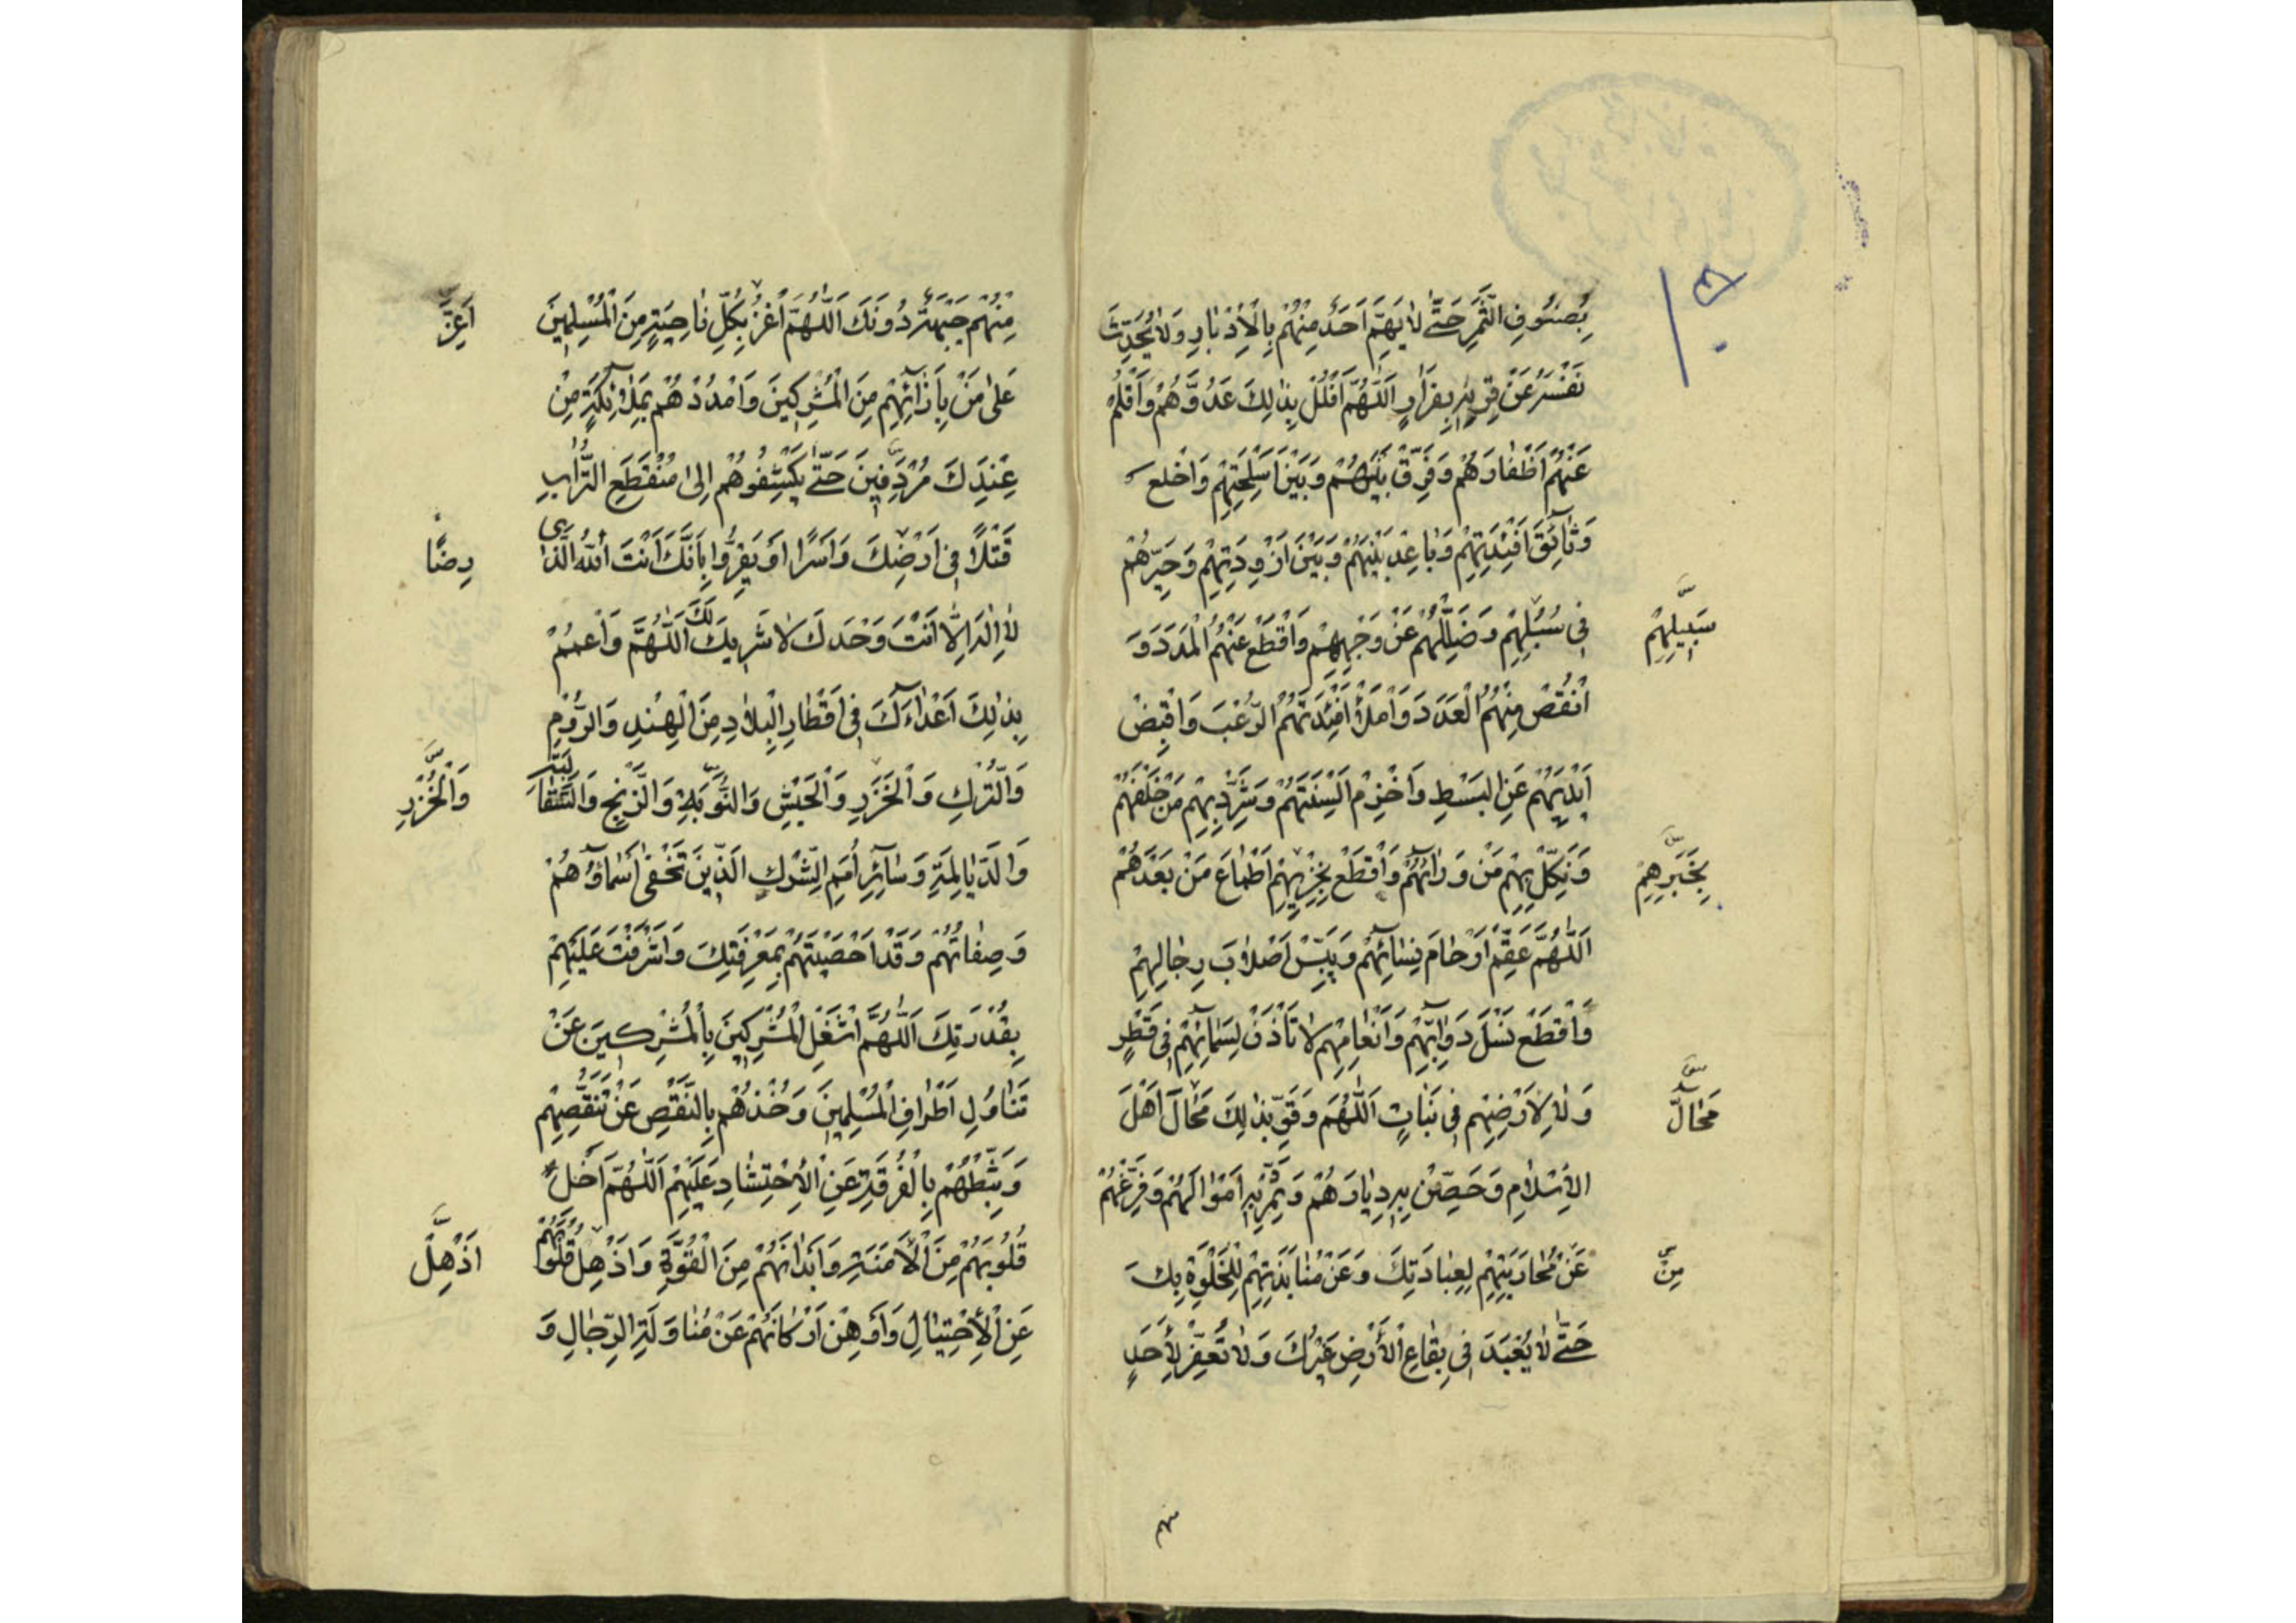 بِصُنُوفِ الثَّمَرِ حَتّٰى لَا يَهُمَّ اَحَدٌ مِنْهُمْ بِالْاَدْبَارِ وَلَا يُحَدِّثَ
نَفْسَهُ عَنْ قِرْنِهِ بِفِرَارٍ اَللّٰهُمَّ افْلُلْ بِذٰلِكَ عَدُوَّهُمْ وَاَقْلِمْ
عَنْهُمْ اَظْفَارَهُمْ وَفَرِّقْ بَيْنَهُمْ وَبَيْنَ اَسْلِحَتِهِمْ وَاخْلَعْ
وَثَآئِقَ اَفْئِدَتِهِمْ وَبَاعِدْ بَيْنَهُمْ وَبَيْنَ اَزْوِدَتِهِمْ وَحَيِّرْهُمْ
فِى سُبُلِهِمْ وَضَلِّلْهُمْ عَنْ وَجْهِهِمْ وَاقْطَعْ عَنْهُمُ الْمَدَدَ وَ
سَبِيلِهِمْ
انْقُصْ مِنْهُمُ الْعَدَدَ وَامْلَأْ اَفْئِدَتَهُمُ الرُّعْبَ وَاقْبِضْ
اَيْدِيَهُمْ عَنِ البَسْطِ وَاخْزِمْ اَلْسِنَتَهُمْ وَشَرِّدْ بِهِمْ مَنْ خَلْفَهُمْ
وَنَكِّلْ بِهِمْ مَنْ وَرَائَهُمْ وَاقْطَعْ بِخِزْيِهِمْ اَطْمَاعَ مَنْ بَعْدَهُمْ
اَللّٰهُمَّ عَقِّمْ اَرْحَامَ نِسَائِهِمْ وَيَبِّسْ اَصْلَابَ رِجَالِهِمْ
وَاقْطَعْ نَسْلَ دَوَابِّهِمْ وَاَنْعَامِهِمْ لَا تَأْذَنْ لِسَمَائِهِمْ فِى قَطْرٍ
وَلَا لِاَرْضِهِمْ فِى نَبَاتٍ اَللّٰهُمَّ وَقَوِّ بِذٰلِكَ مَحَالَّ اَهْلَ
مَحَالَّ
الْاِسْلَامِ وَحَصِّنْ بِهِ دِيَارَهُمْ وَثَمِّرْ بِهِ اَمْوَالَهُمْ وَفَرِّغْهُمْ
عَنْ مُحَارَبَتِهِمْ لِعِبَادَتِكَ وَعَنْ مُنَابَذَتِهِمْ لِلْخَلْوَةِ بِكَ
مِنْ
حَتّٰى لَا يُعْبَدَ فِى بِقَاعِ الْاَرْضِ غَيْرُكَ وَلَا تُعَفَّرَ لِاَحَدٍ
مِنْهُمْ جَبْهَةٌ دُونَكَ اَللّٰهُمَّ اغْزُ بِكُلِّ نَاحِيَةٍ مِنَ الْمُسْلِمِينَ
عَلٰى مَنْ بِاَزَائِهِمْ مِنَ الْمُشْرِكِينَ وَامْدُدْهُمْ بِمَلَآئِكَةٍ مِنْ
عِنْدِكَ مُرْدِفِينَ حَتّٰى يَكْشِفُوهُمْ اِلٰى مُنْقَطَعِ التُّرَابِ
قَتْلًا فِى اَرْضِكَ وَاَسْرًا اَوْ يُقِرُّوا بِاَنَّكَ اَنْتَ اللّٰهُ الَّذِى
لَا اِلٰهَ اِلَّا اَنْتَ وَحْدَكَ لَا شَرِيكَ لَكَ اَللّٰهُمَّ وَاعْمُمْ
بِذٰلِكَ اَعْدَآءَكَ فِى اَقْطَارِ الْبِلَادِ مِنَ الْهِنْدِ وَالرُّومِ
وَالتُّرْكِ وَالْخَزَرِ وَالْحَبَشِ وَالنُّوبَةِ وَالزَّنْجِ وَالسَّقَالِبَةِ
وَالْخُزْرِ
وَالدَّيَالِمَةِ وَسَآئِرِ اُمَمِ الشِّرْكِ الَّذِينَ تَخْفٰى اَسْمَآؤُهُمْ
وَصِفَاتُهُمْ وَقَدْ اَحْصَيْتَهُمْ بِمَعْرِفَتِكَ وَاَشْرَفْتَ عَلَيْهِمْ
بِقُدْرَتِكَ اَللّٰهُمَّ اشْغَلِ الْمُشْرِكِينَ بِالْمُشْرِكِينَ عَنْ
تَنَاوُلِ اَطْرَافِ الْمُسْلِمِينَ وَخُذْهُمْ بِالنَّقْصِ عَنْ تَنَقُّصِهِمْ
وَثَبِّطْهُمْ بِالْفُرْقَةِ عَنِ الْاِحْتِشَادِ عَلَيْهِمْ اَللّٰهُمَّ اَخْلِ
قُلُوبَهُمْ مِنَ الْاَمَنَةِ وَاَبْدَانَهُمْ مِنَ الْقُوَّةِ وَاَذْهِلْ قُلُوبَهُمْ
اَذْهِلْ
عَنِ الْاِحْتِيَالِ وَاَوْهِنْ اَرْكَانَهُمْ عَنْ مُنَازَلَةِ الرِّجَالِ وَ